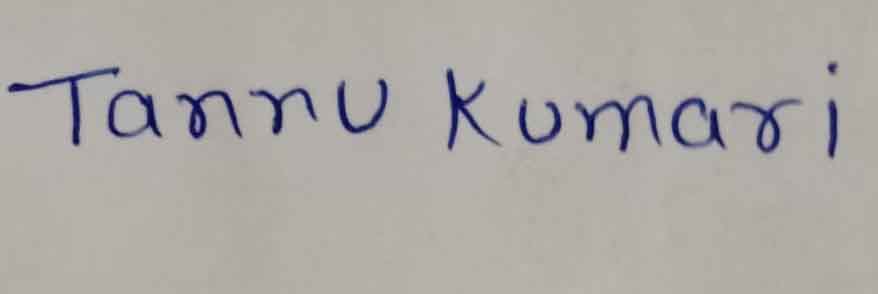 Tannu Kumari